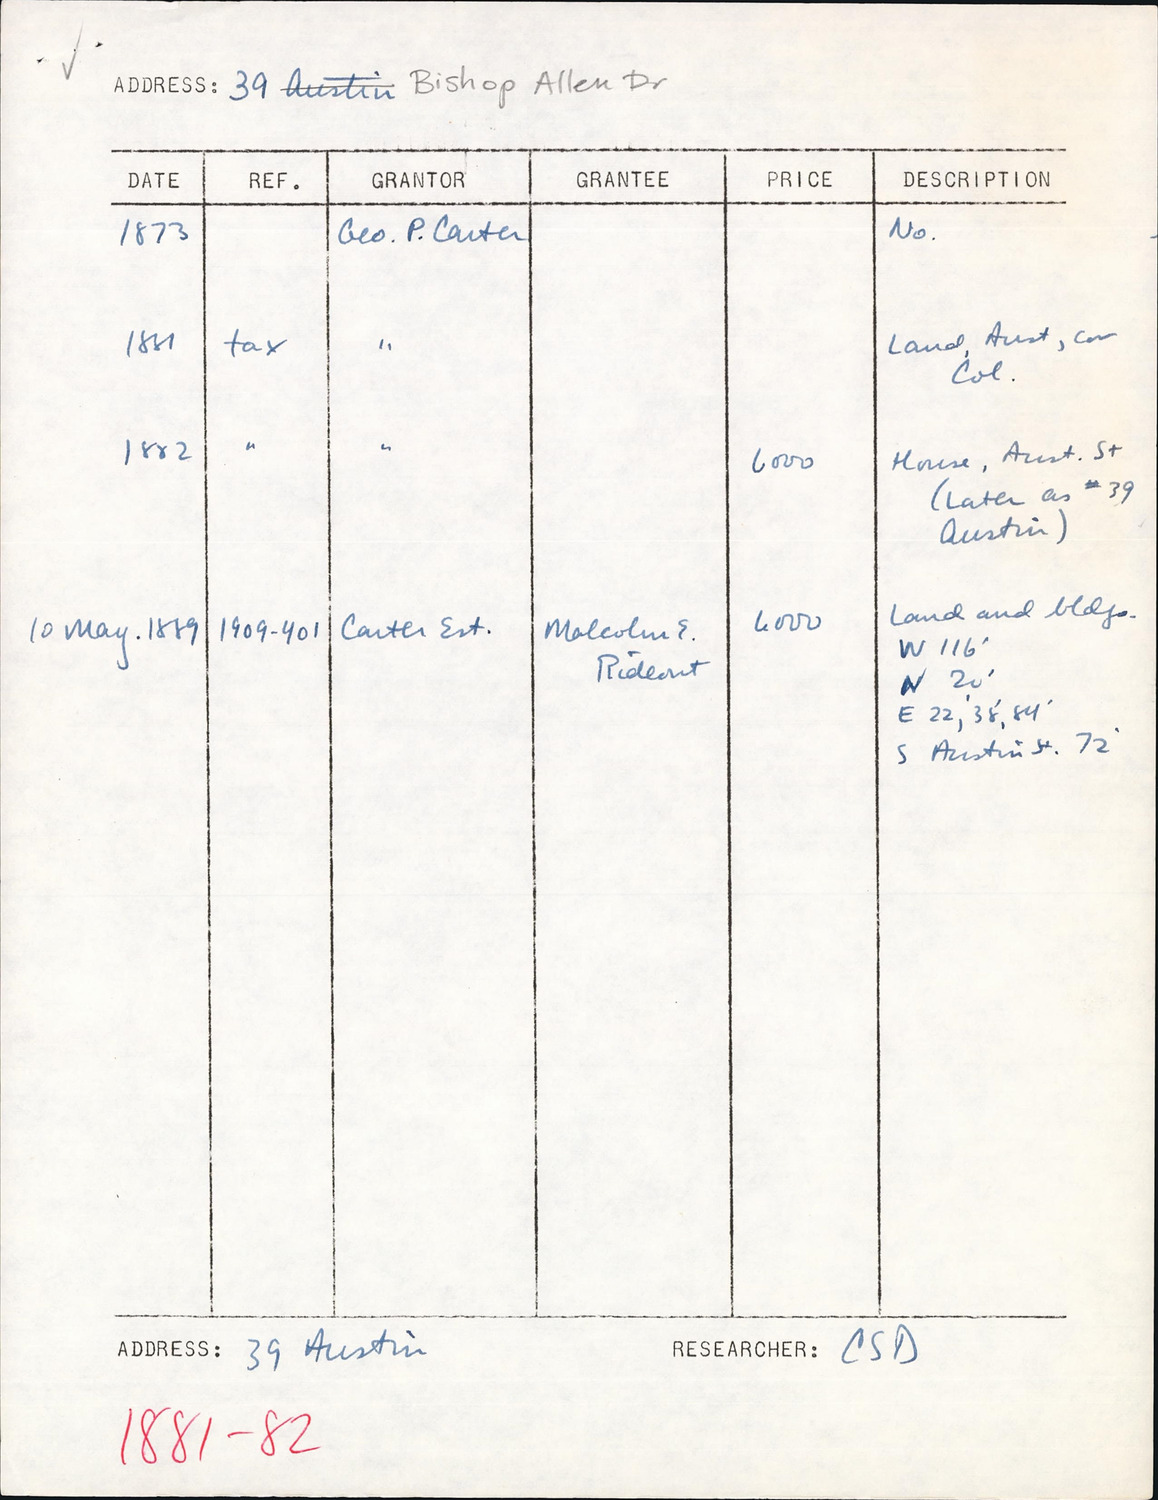 ADDRESS: 39 Austin Bishop Allen Dr
DATE REF. GRANTOR GRANTEE PRICE DESCRIPTION
1873 Geo. P. Carter No.
1881 tax " Land, Aust, cor
Col.
1882 " " 6000 House, Aust. St
(Later as #39
Austin)
10 May. 1889 1909-401 Carter Est. Malcolm E. 6000 Land and bldgs.
Rideout W 116'
N 20'
E 22', 38', 84'
S Austin St. 72'
ADDRESS: 39 Austin RESEARCHER: CSD
1881-82